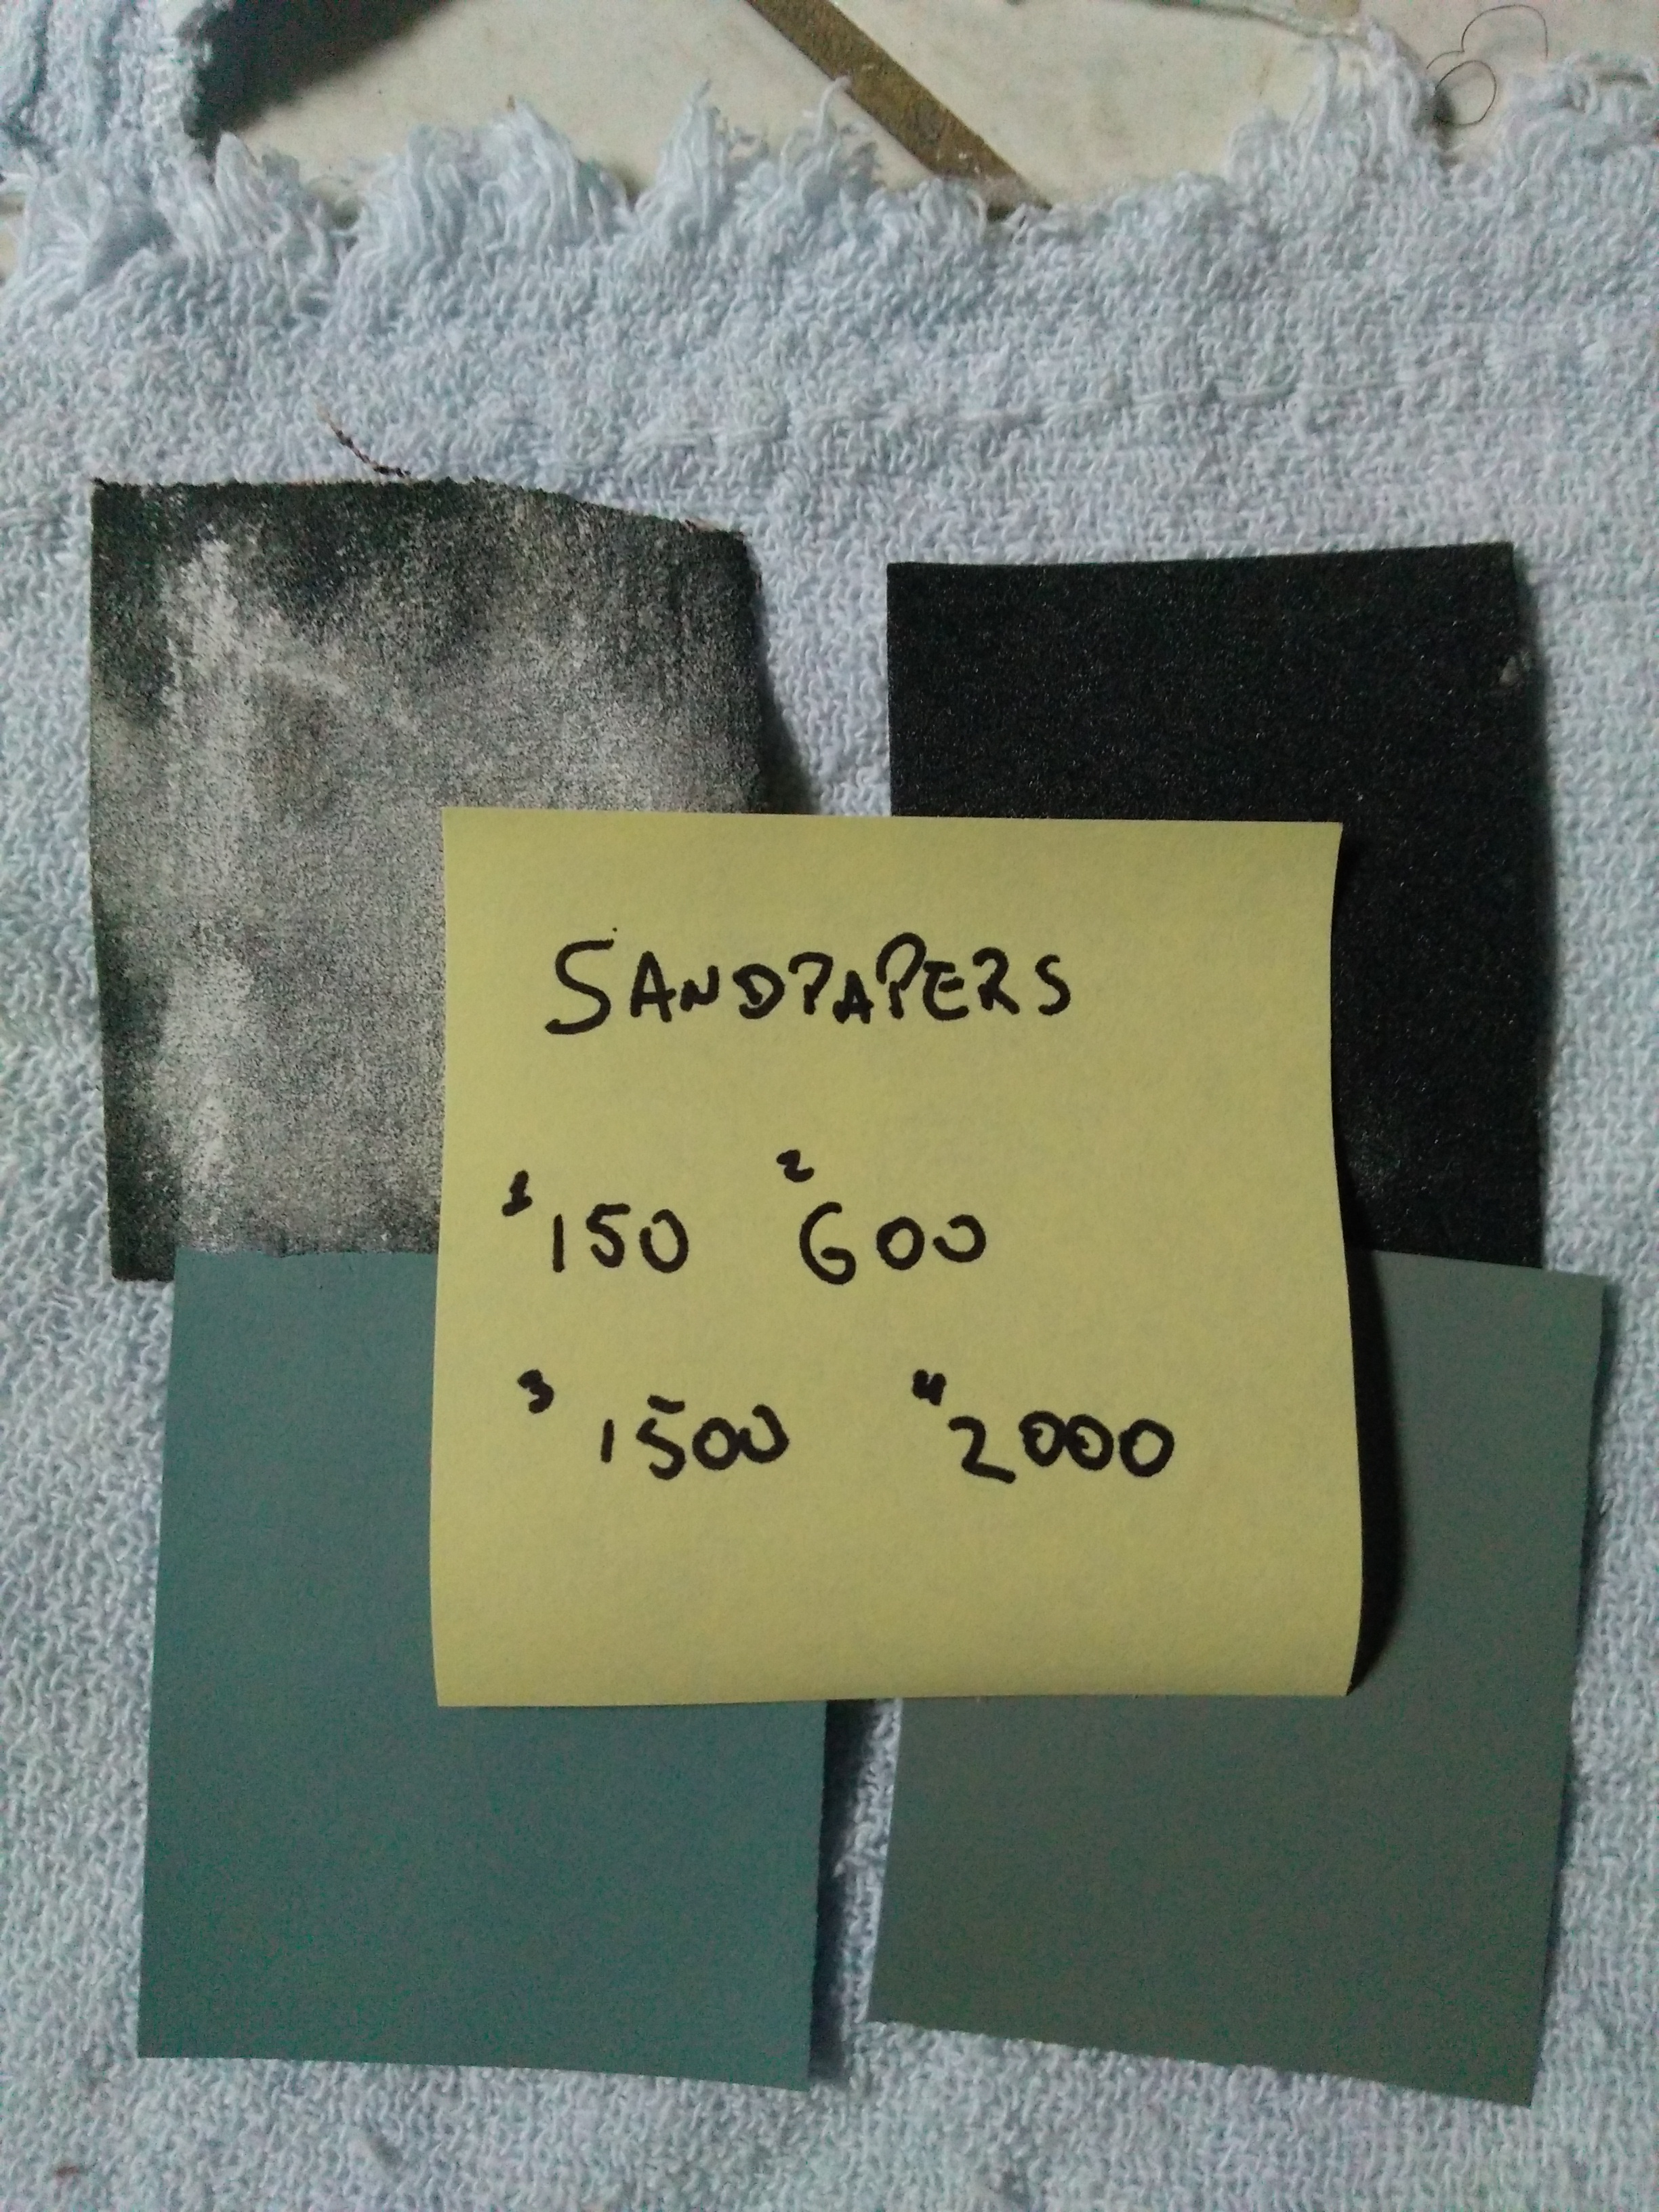 SANDPAPERS
1 150 2 600
3 1500 4 2000